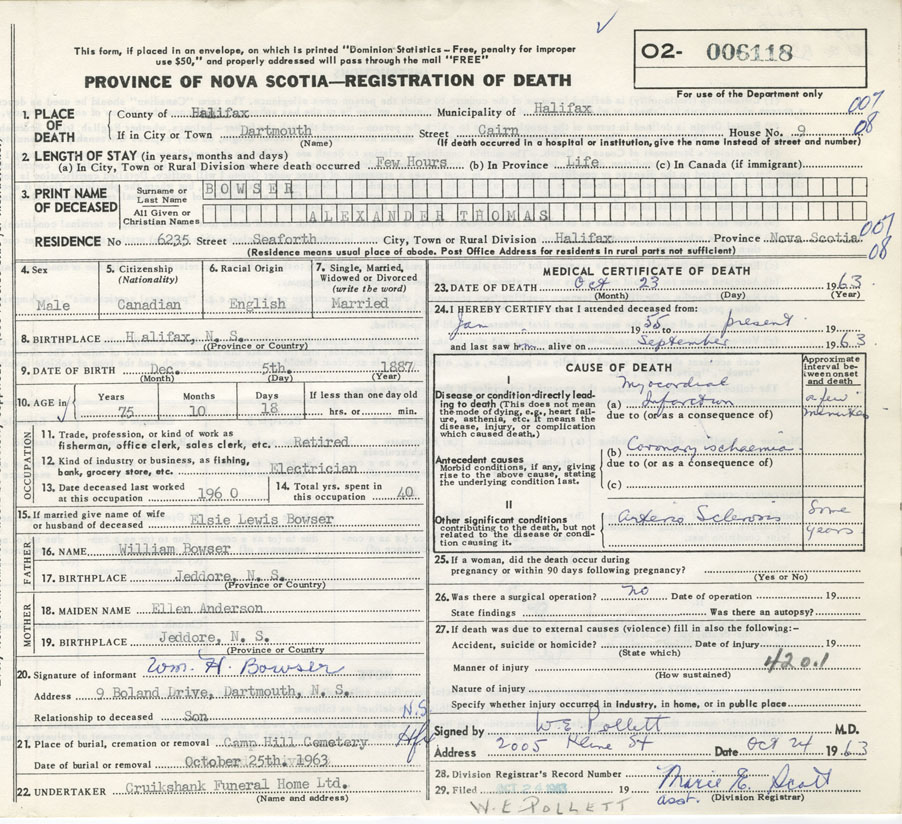 This form, if placed in an envelope, on which is printed "Dominion Statistics – Free, penalty for improper
use $50," and properly addressed will pass through the mail "FREE"
O2- 006118
PROVINCE OF NOVA SCOTIA—REGISTRATION OF DEATH
For use of the Department only
1. PLACE OF DEATH
County of Halifax Municipality of Halifax 007
If in City or Town Dartmouth Street Cairn House No. 9 08
(Name) (If death occurred in a hospital or institution, give the name instead of street and number)
2. LENGTH OF STAY (in years, months and days)
(a) In City, Town or Rural Division where death occurred Few Hours (b) In Province Life (c) In Canada (if immigrant)
3. PRINT NAME OF DECEASED
Surname or Last Name BOWSER
All Given or Christian Names ALEXANDER THOMAS
RESIDENCE No 6235 Street Seaforth City, Town or Rural Division Halifax Province Nova Scotia 007
(Residence means usual place of abode. Post Office Address for residents in rural parts not sufficient) 08
4. Sex
Male
5. Citizenship
(Nationality)
Canadian
6. Racial Origin
English
7. Single, Married,
Widowed or Divorced
(write the word)
Married
8. BIRTHPLACE Halifax, N. S.
(Province or Country)
9. DATE OF BIRTH Dec. 5th. 1887
(Month) (Day) (Year)
10. AGE in
Years Months Days If less than one day old
75 10 18 hrs. or min.
OCCUPATION
11. Trade, profession, or kind of work as
fisherman, office clerk, sales clerk, etc. Retired
12. Kind of industry or business, as fishing,
bank, grocery store, etc. Electrician
13. Date deceased last worked
at this occupation 1960
14. Total yrs. spent in
this occupation 40
15. If married give name of wife
or husband of deceased Elsie Lewis Bowser
FATHER
16. NAME William Bowser
17. BIRTHPLACE Jeddore, N. S.
(Province or Country)
MOTHER
18. MAIDEN NAME Ellen Anderson
19. BIRTHPLACE Jeddore, N. S.
(Province or Country)
20. Signature of informant Wm. H. Bowser
Address 9 Boland Drive, Dartmouth, N. S.
Relationship to deceased Son N.S.
21. Place of burial, cremation or removal Camp Hill Cemetery Hfx
Date of burial or removal October 25th. 1963
22. UNDERTAKER Cruikshank Funeral Home Ltd.
(Name and address)
MEDICAL CERTIFICATE OF DEATH
23. DATE OF DEATH Oct 23 1963
(Month) (Day) (Year)
24. I HEREBY CERTIFY that I attended deceased from:
Jan 1955 to present 19
and last saw him alive on September 1963
CAUSE OF DEATH
Approximate
interval be-
tween onset
and death
I
Disease or condition directly lead-
ing to death (This does not mean
the mode of dying, e.g., heart fail-
ure, asthenia, etc. It means the
disease, injury, or complication
which caused death.)
Myocardial
(a) Infarction a few
due to (or as a consequence of) minutes
Antecedent causes
Morbid conditions, if any, giving
rise to the above cause, stating
the underlying condition last.
(b) Coronary ischaemia
due to (or as a consequence of)
(c)
II
Other significant conditions
contributing to the death, but not
related to the disease or condi-
tion causing it.
Arterio Sclerosis Some
years
25. If a woman, did the death occur during
pregnancy or within 90 days following pregnancy?
(Yes or No)
26. Was there a surgical operation? no Date of operation 19
State findings Was there an autopsy?
27. If death was due to external causes (violence) fill in also the following:–
Accident, suicide or homicide? Date of injury 19
(State which)
Manner of injury 420.1
(How sustained)
Nature of injury
Specify whether injury occurred in industry, in home, or in public place
Signed by W.E. Pollett M.D.
Address 2005 Kline St Date Oct 24 1963
28. Division Registrar's Record Number
29. Filed 19 Marie E. Scott
asst. (Division Registrar)
W. E POLLETT